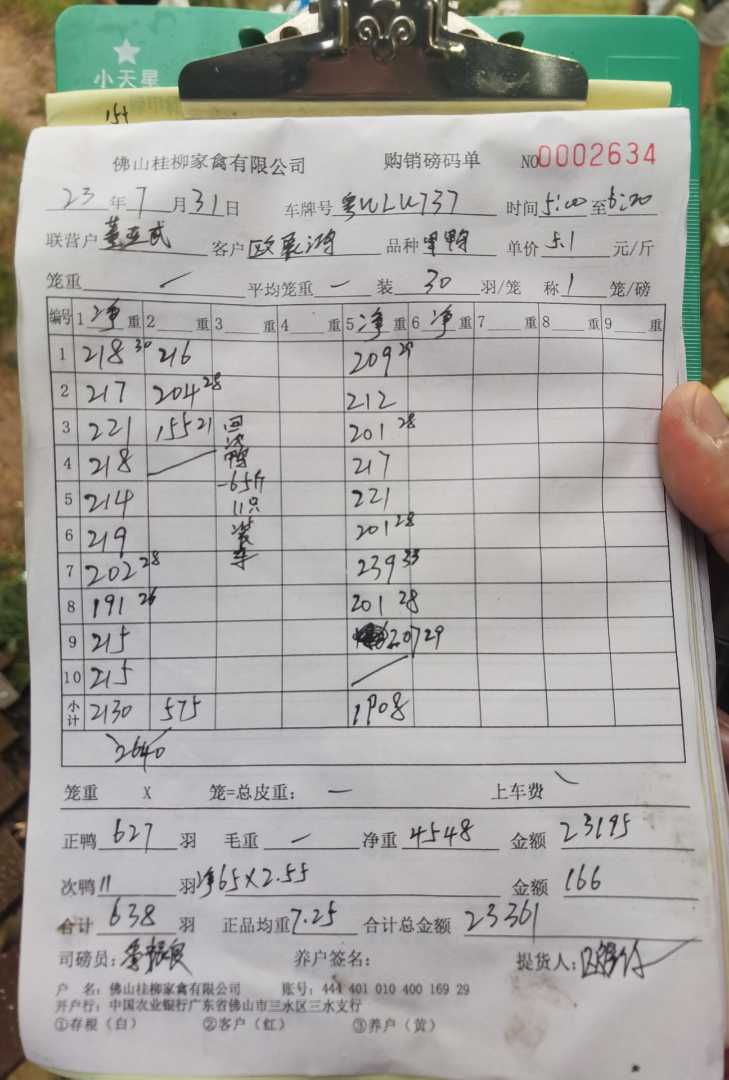 小天星
佛山桂柳家禽有限公司 购销磅码单 NO0002634
23年7月31日 车牌号 粤WLU737 时间5:00至6:20
联营户 客户 欧 鸿 品种 鸭 单价 5.1 元/斤
笼重 — 平均笼重 — 装 30 羽/笼 称 1 笼/磅
编号 1 净 重 2 重 3 重 4 重 5 净 重 6 净 重 7 重 8 重 9 重
1 218 30 216 209 29
2 217 204 28 212
3 221 155 21 回 201 28
4 218 鸭 217
5 214 -65斤 221
6 219 11只 201 28
7 202 28 装车 239 33
8 191 26 201 28
9 215 207 29
10 215
小计 2130 575 1908
2640
笼重 X 笼=总皮重: — 上车费
正鸭 627 羽 毛重 — 净重 4548 金额 23195
次鸭 11 羽 净65×2.55 金额 166
合计 638 羽 正品均重 7.25 合计总金额 23361
司磅员: 养户签名: 提货人:
户 名: 佛山桂柳家禽有限公司 账号: 444 401 010 400 169 29
开户行: 中国农业银行广东省佛山市三水区三水支行
①存根（白） ②客户（红） ③养户（黄）